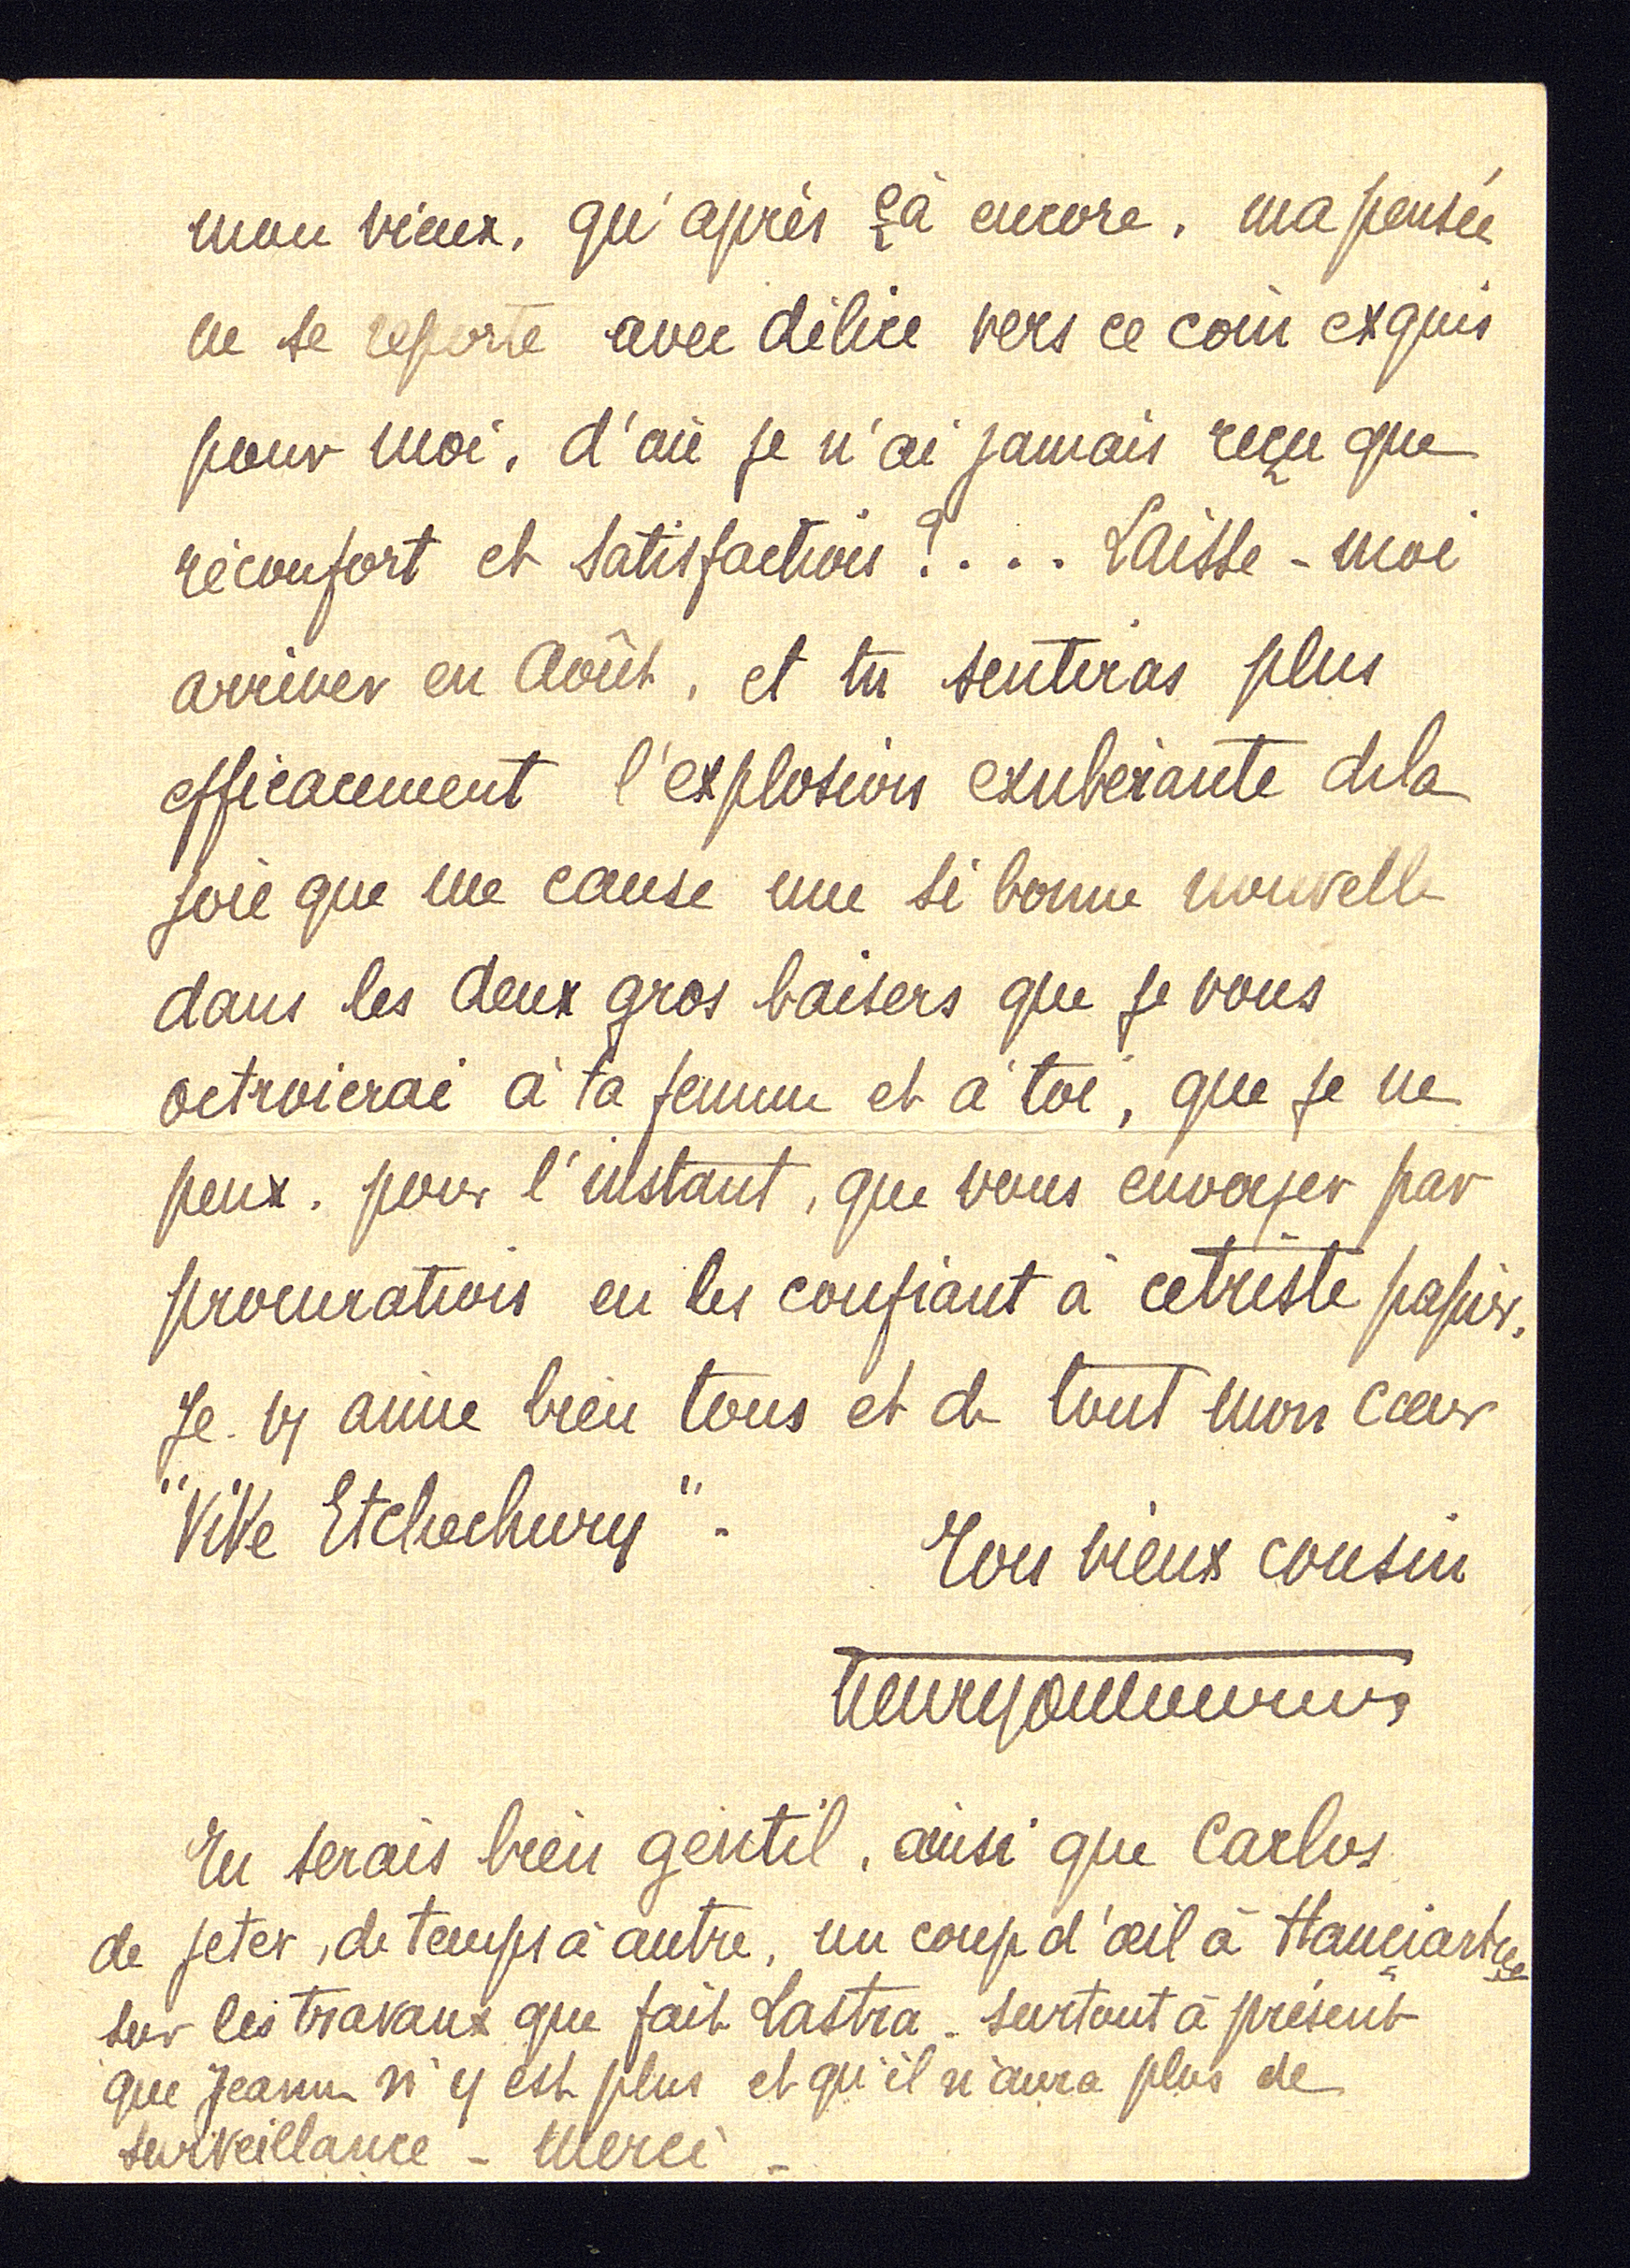 mon vieux, qu'après çà encore, ma pensée
ne se reporte avec délice vers ce coin exquis
pour moi, d'où je n'ai jamais reçu que
réconfort et satisfaction ?.... Laisse-moi
arriver en Août, et tu sentiras plus
efficacement l'explosion exubérante de la
joie que me cause une si bonne nouvelle
dans les deux gros baisers que je vous
octroierai à ta femme et à toi, que je ne
peux, pour l'instant, que vous envoyer par
procuration en les confiant à ce triste papier.
Je vs aime bien tous et de tout mon cœur
"Vive Etchechury".
Ton vieux cousin
Tu serais bien gentil, ainsi que Carlos
de jeter, de temps à autre, un coup d'œil à
sur les travaux que fait Lastra - surtout à présent
que Jeanne n'y est plus et qu'il n'aura plus de
surveillance - Merci -